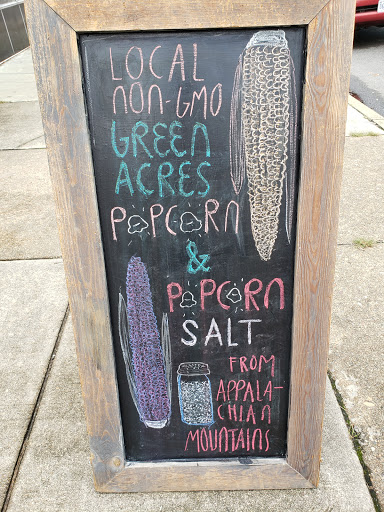 LOCAL
NON-GMO
GREEN
ACRES
POPCORN
&
POPCORN
SALT
FROM
APPALA-
CHIAN
MOUNTAINS